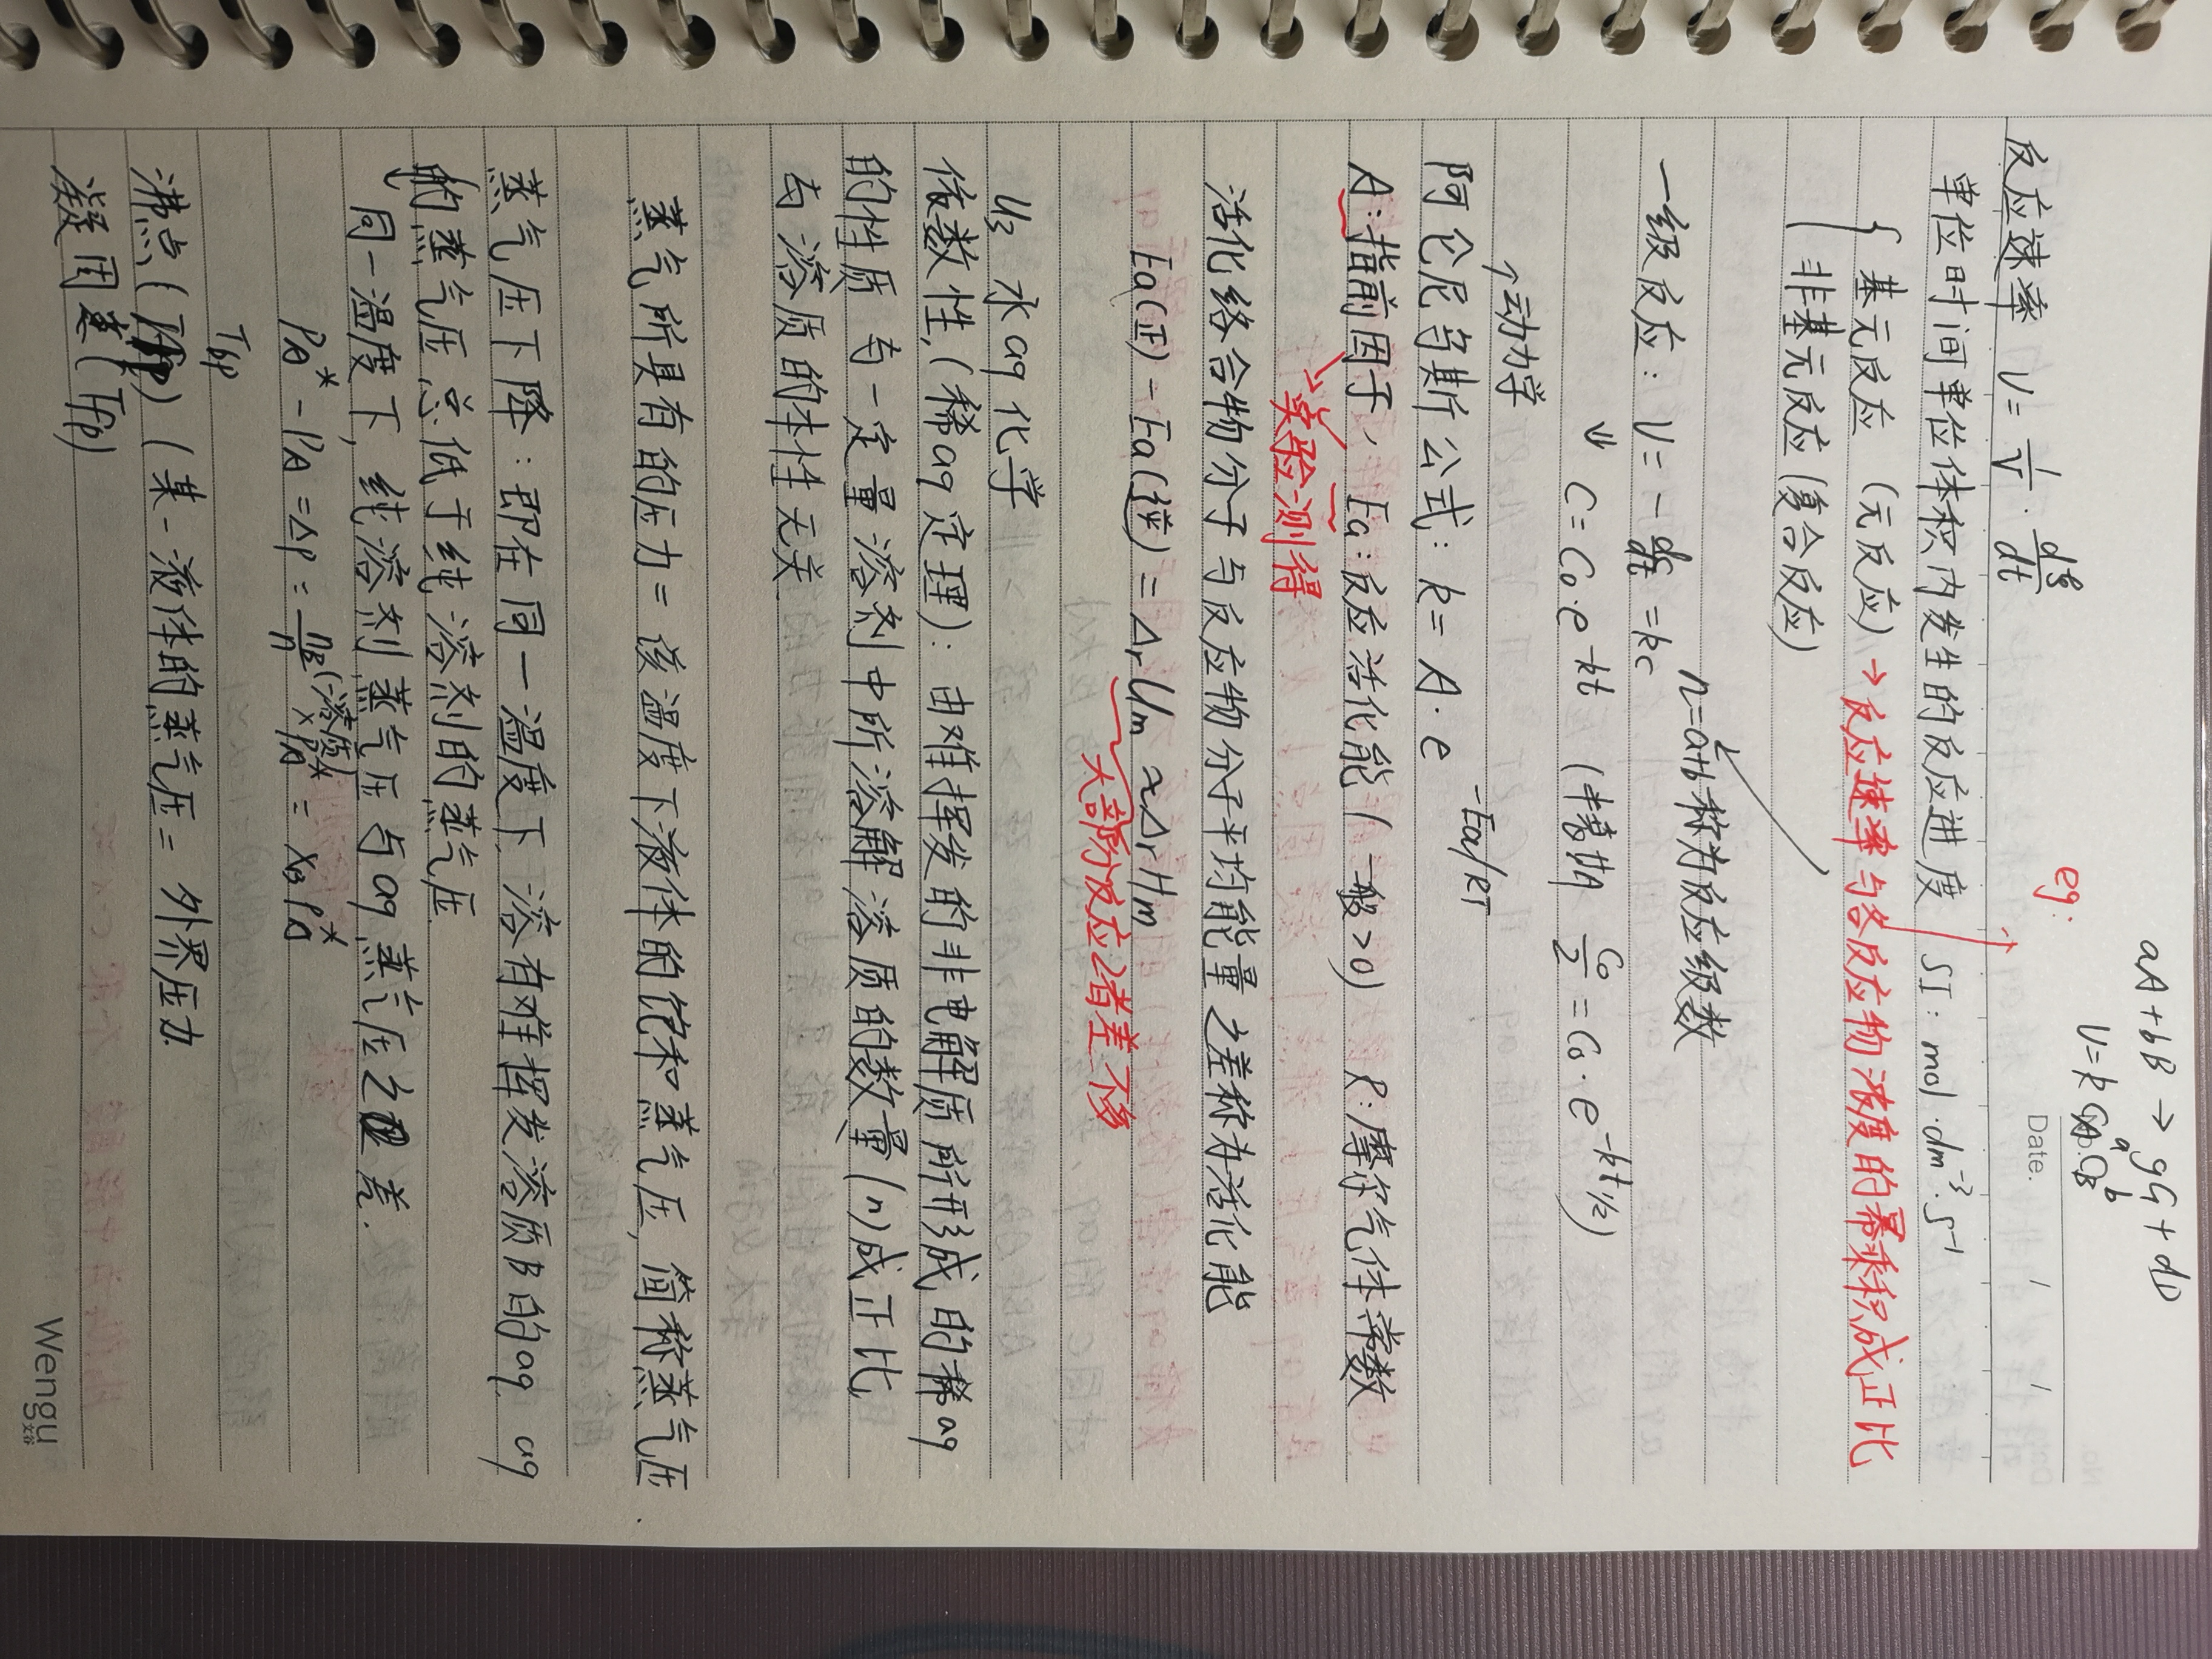 aA+bB → gG+dD
eg: v=k cA^a·cB^b
No.
Date. / /
反应速率 v= 1/V · dξ/dt
单位时间单位体积内发生的反应进度 SI: mol·dm⁻³·s⁻¹
{ 基元反应 (元反应) → 反应速率与各反应物浓度的幂乘积成正比
非基元反应 (复合反应)
n=a+b称为反应级数
一级反应: v= -dc/dt =kc
↓ C=C₀·e^-kt (半衰期 C₀/2 = C₀·e^-kt1/2)
↑动力学
阿仑尼乌斯公式: k= A·e^-Ea/RT
A:指前因子, Ea:反应活化能 (一般>0) R:摩尔气体常数
→实验测得
活化络合物分子与反应物分子平均能量之差称为活化能
Ea(正)-Ea(逆)=ΔrUm≈ΔrHm
大部分反应2者差不多
U₃ 水aq化学
依数性,(稀aq定理): 由难挥发的非电解质所形成的稀aq
的性质与一定量溶剂中所溶解溶质的数量(n)成正比,
与溶质的本性无关
蒸气所具有的压力=该温度下液体的饱和蒸气压,简称蒸气压
蒸气压下降:即在同一温度下,溶有难挥发溶质B的aq, aq
的蒸气压总低于纯溶剂的蒸气压.
同一温度下,纯溶剂蒸气压与aq蒸气压之差.
PA* - PA = ΔP = nB(溶质)/n × PA* = XB PA*
Tbp
沸点( ) (某一液体的蒸气压=外界压力.
凝固点(Tfp)
Wengu
文谷